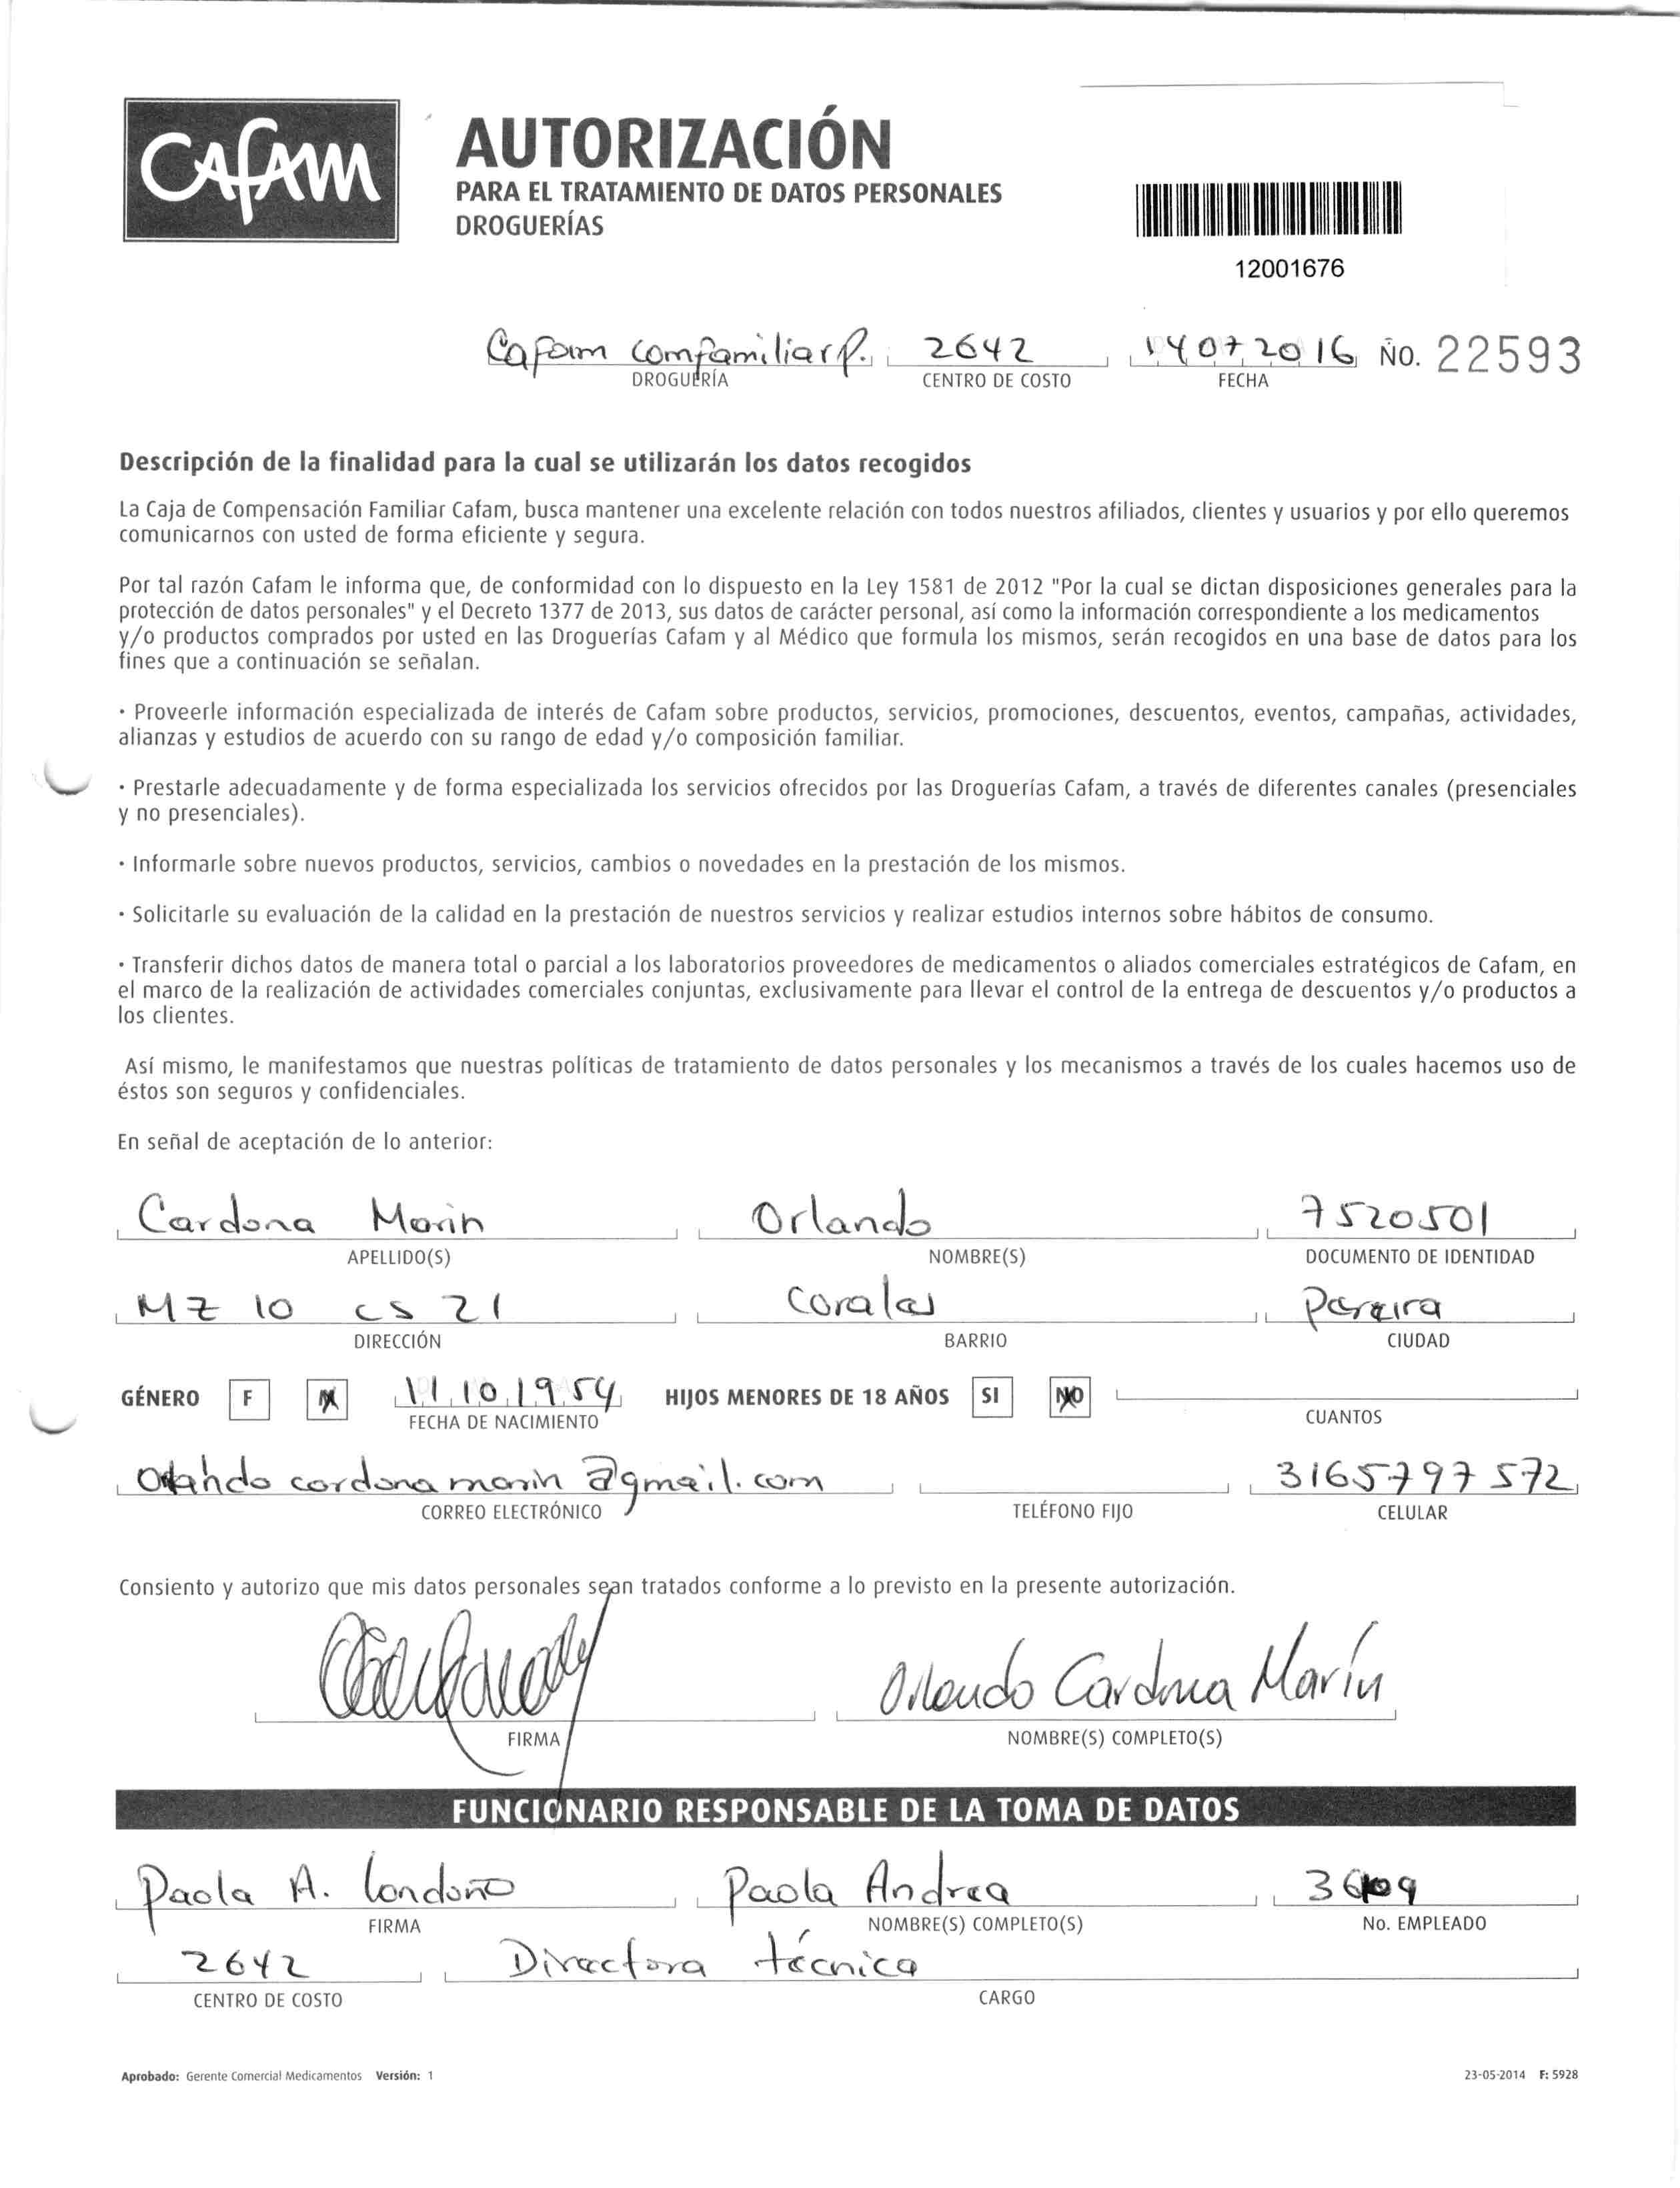 CAFAM
AUTORIZACIÓN
PARA EL TRATAMIENTO DE DATOS PERSONALES
DROGUERÍAS
12001676
Cafam comfamiliar P. 2642 14072016 No. 22593
DROGUERÍA CENTRO DE COSTO FECHA
Descripción de la finalidad para la cual se utilizarán los datos recogidos
La Caja de Compensación Familiar Cafam, busca mantener una excelente relación con todos nuestros afiliados, clientes y usuarios y por ello queremos
comunicarnos con usted de forma eficiente y segura.
Por tal razón Cafam le informa que, de conformidad con lo dispuesto en la Ley 1581 de 2012 "Por la cual se dictan disposiciones generales para la
protección de datos personales" y el Decreto 1377 de 2013, sus datos de carácter personal, así como la información correspondiente a los medicamentos
y/o productos comprados por usted en las Droguerías Cafam y al Médico que formula los mismos, serán recogidos en una base de datos para los
fines que a continuación se señalan.
· Proveerle información especializada de interés de Cafam sobre productos, servicios, promociones, descuentos, eventos, campañas, actividades,
alianzas y estudios de acuerdo con su rango de edad y/o composición familiar.
· Prestarle adecuadamente y de forma especializada los servicios ofrecidos por las Droguerías Cafam, a través de diferentes canales (presenciales
y no presenciales).
· Informarle sobre nuevos productos, servicios, cambios o novedades en la prestación de los mismos.
· Solicitarle su evaluación de la calidad en la prestación de nuestros servicios y realizar estudios internos sobre hábitos de consumo.
· Transferir dichos datos de manera total o parcial a los laboratorios proveedores de medicamentos o aliados comerciales estratégicos de Cafam, en
el marco de la realización de actividades comerciales conjuntas, exclusivamente para llevar el control de la entrega de descuentos y/o productos a
los clientes.
Así mismo, le manifestamos que nuestras políticas de tratamiento de datos personales y los mecanismos a través de los cuales hacemos uso de
éstos son seguros y confidenciales.
En señal de aceptación de lo anterior:
Cardona Marin Orlando 7520501
APELLIDO(S) NOMBRE(S) DOCUMENTO DE IDENTIDAD
MZ 10 cs 21 Corales Pereira
DIRECCIÓN BARRIO CIUDAD
GÉNERO F M 11 10 1954 HIJOS MENORES DE 18 AÑOS SI NO
FECHA DE NACIMIENTO CUANTOS
Orlando cardona marin @gmail.com 3165797572
CORREO ELECTRÓNICO TELÉFONO FIJO CELULAR
Consiento y autorizo que mis datos personales sean tratados conforme a lo previsto en la presente autorización.
Orlando Cardona Marín
FIRMA NOMBRE(S) COMPLETO(S)
FUNCIONARIO RESPONSABLE DE LA TOMA DE DATOS
Paola A. Londoño Paola Andrea
FIRMA NOMBRE(S) COMPLETO(S) No. EMPLEADO
2642 Directora técnica
CENTRO DE COSTO CARGO
Aprobado: Gerente Comercial Medicamentos Versión: 1 23-05-2014 F: 5928